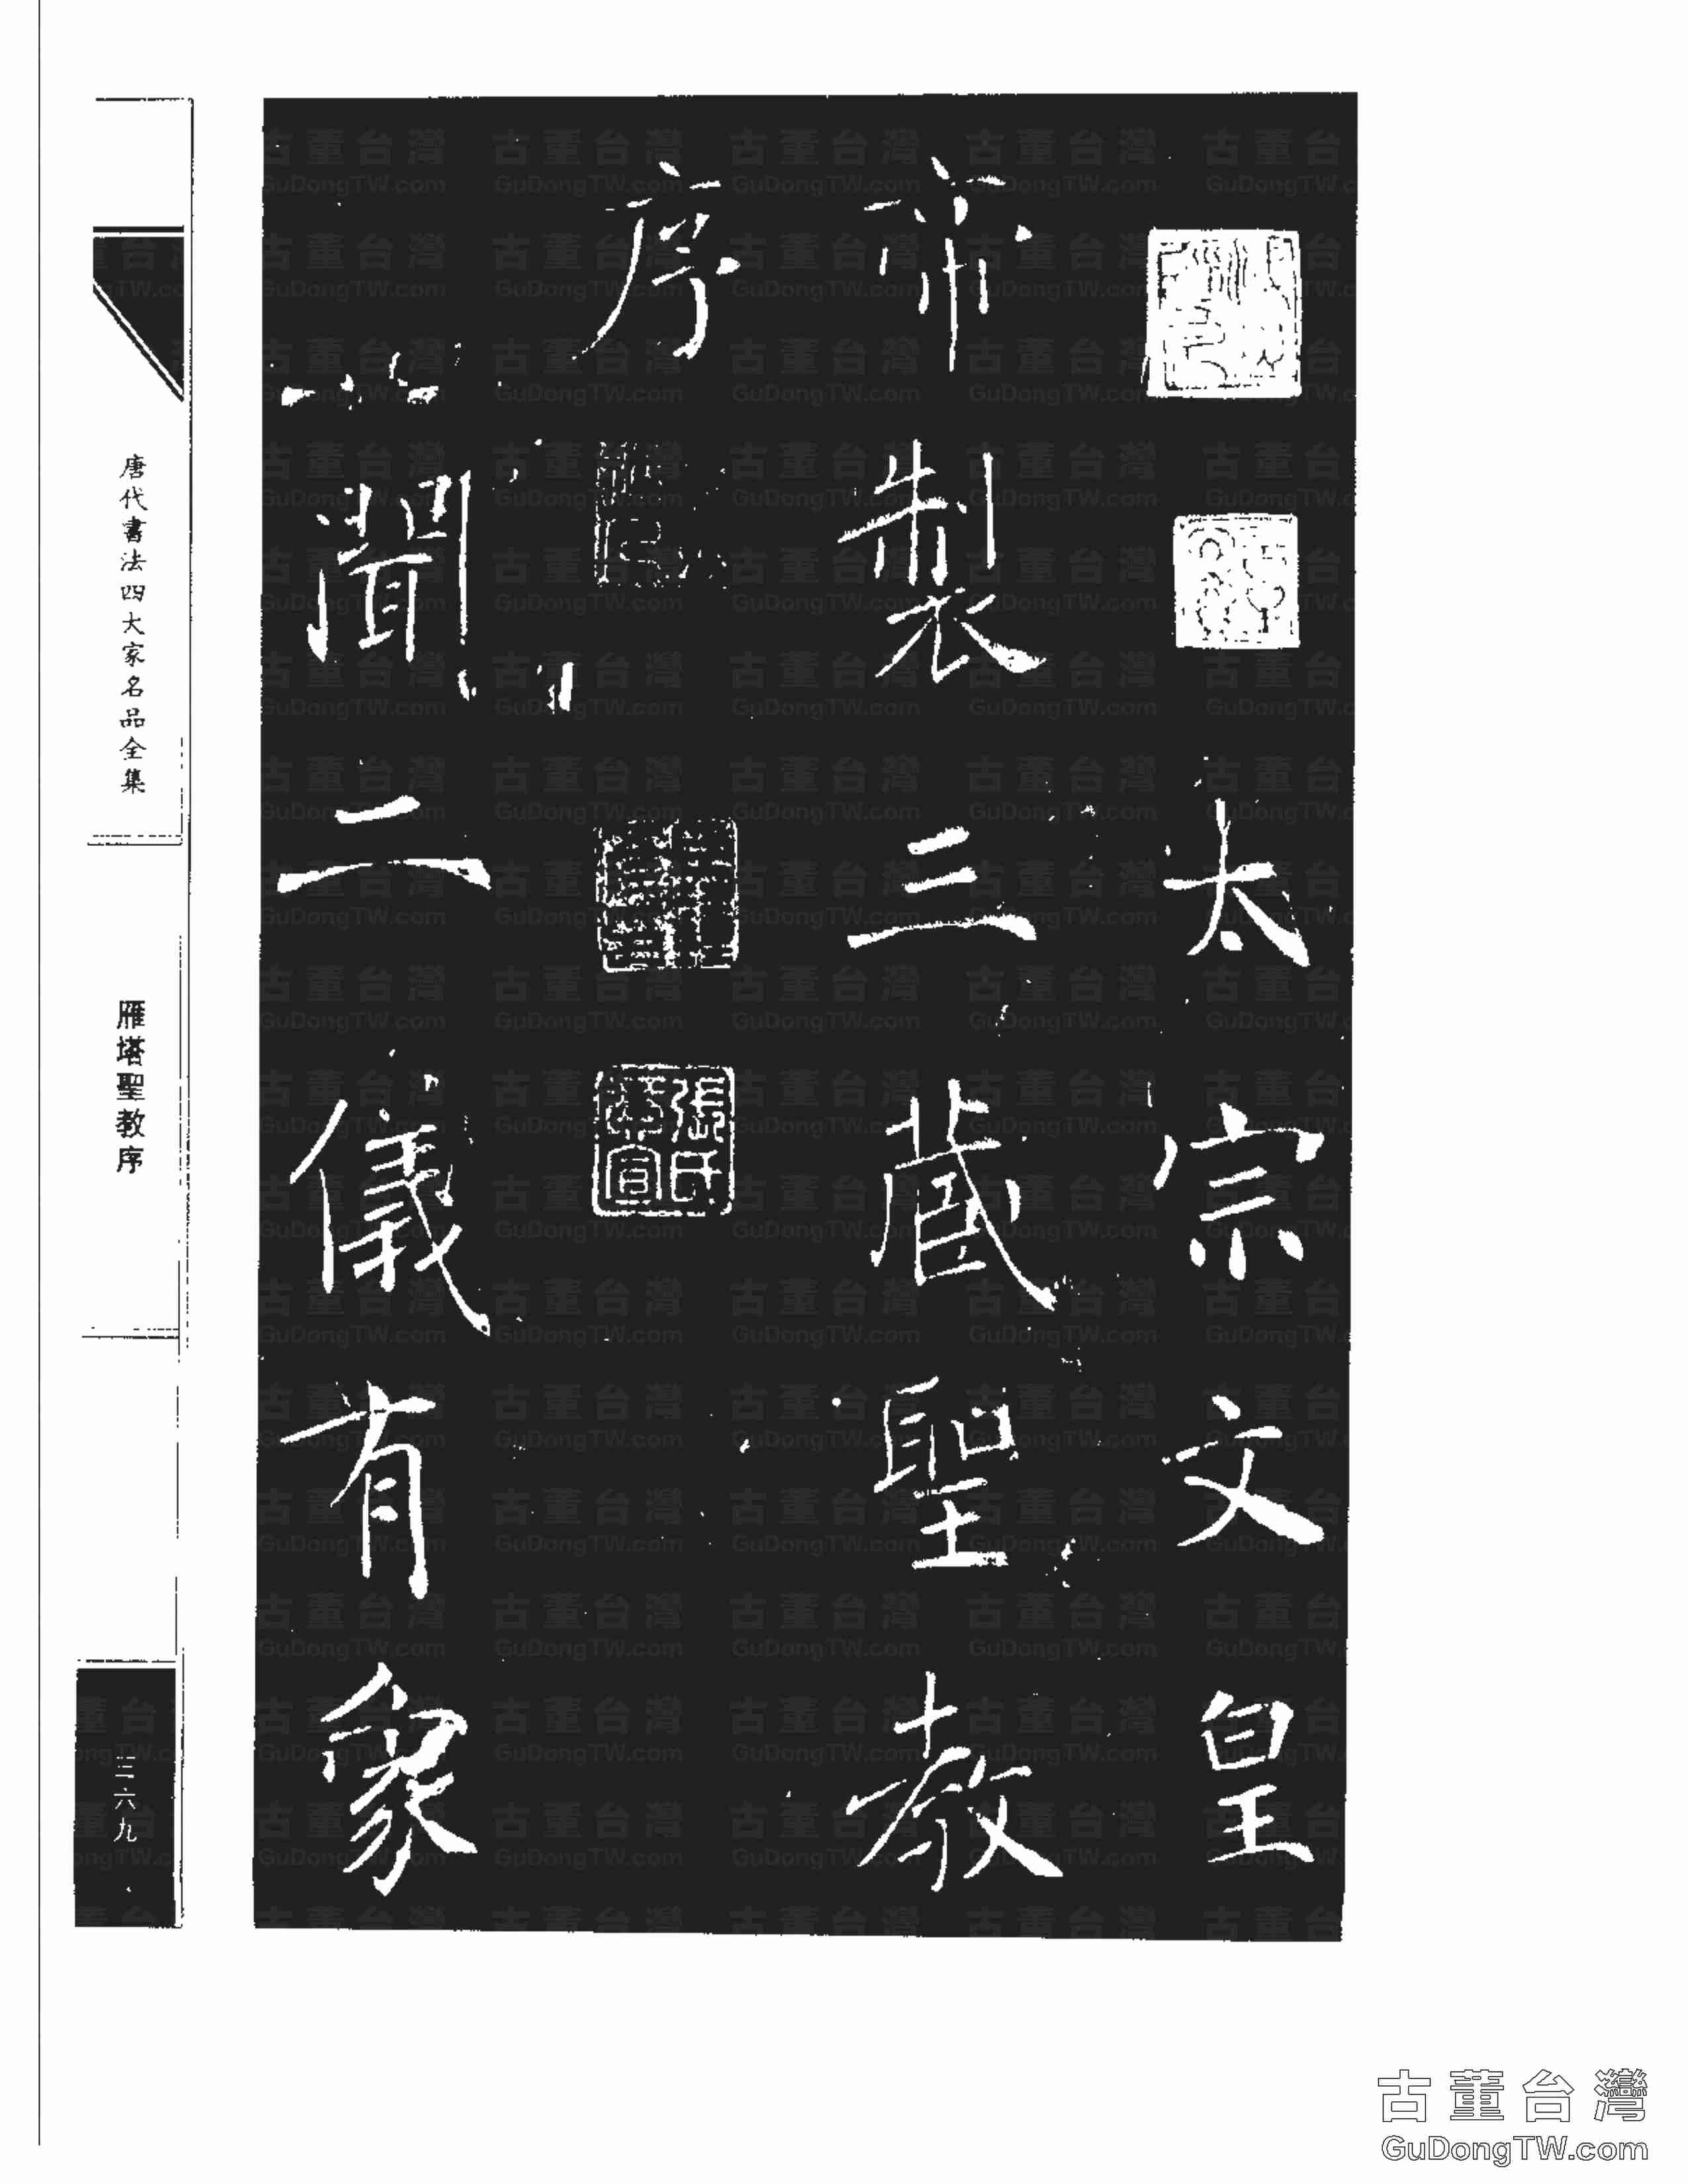 太宗文皇
帝製三藏聖教
序
張氏
聞二儀有象
唐代書法四大家名品全集
雁塔聖教序
三六九
古董台灣
GuDongTW.com